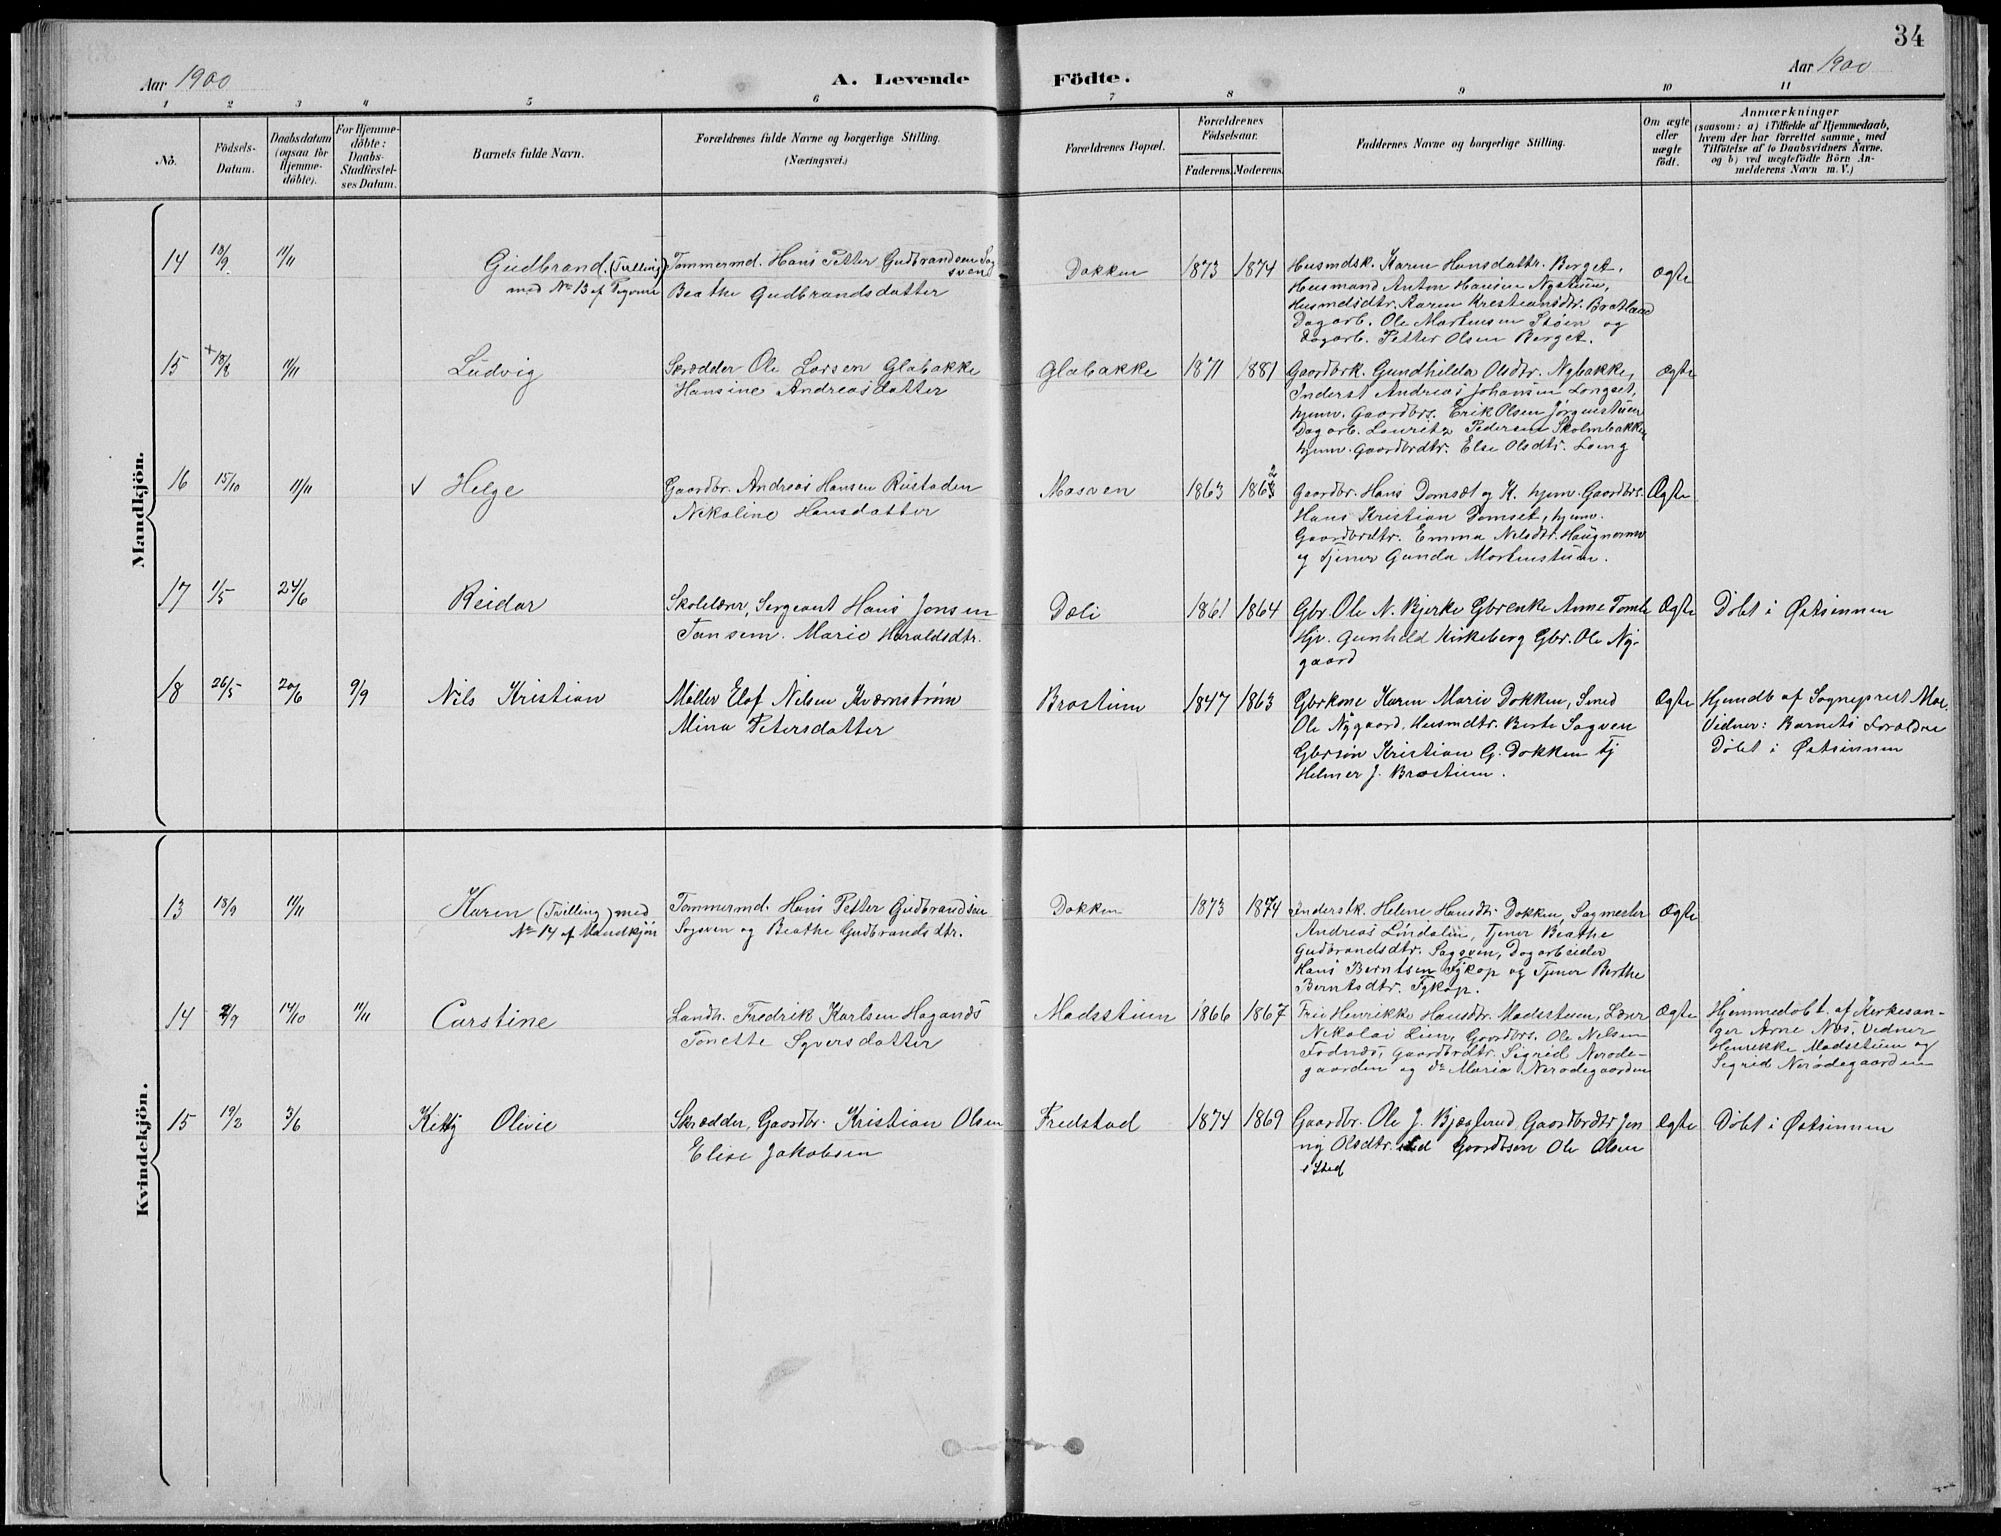 34
Aar 1900
A. Levende Födte.
Aar 1900
1 2 3 4 5 6 7 8 9 10 11
No.
Födsels-
Datum.
Daabsdatum
(ogsaa for
Hjemme-
döbte).
For Hjemme-
döbte:
Daabs-
Stadfæstel-
ses Datum.
Barnets fulde Navn.
Forældrenes fulde Navne og borgerlige Stilling.
(Næringsvei.)
Forældrenes Bopæl.
Forældrenes
Födselsaar.
Faderens. Moderens.
Faddernes Navne og borgerlige Stilling.
Om ægte
eller
uægte
födt.
Anmærkninger
(saasom: a) i Tilfælde af Hjemmedaab,
hvem der har forrettet samme, med
Tilföielse af to Daabsvidners Navne.
og b) ved uægtefödte Börn An-
melderens Navn m. V.)
Mandkjön.
14 18/9 11/11
Gudbrand. (Tvilling)
med No 13 af Pigerne
Tømmermd. Hans Petter Gudbrandsen Sag
sven
Beathe Gudbrandsdatter
Dokken 1873 1874
Husmdsk. Karen Hansdattr. Berget.
Husmand Anton Hansen Nystuen,
Husmdsdtr. Karen Kristiansdtr. Bratland
Dagarb. Ole Martinsen Støen og
Dagarb. Petter Olsen Berget.
Ægte
15 + 18/8 11/11
Ludvig
Skrædder Ole Larsen Glæbakke
Hansine Andreasdatter
Glæbakke 1871 1881
Gaardbrk. Gundhilda Olsdtr. Nybakke,
Inderst Andreas Johansen Longset,
hjmv. Gaardbrs. Erik Olsen Jørgenstuen
Dagarb. Lauritz Pedersen Skolmbakken
hjmv. Gaardbrdtr. Else Olsdtr. Loeng
Ægte
16 15/10 11/11
√ Helge
Gaardbr. Andreas Hansen Rustaden
Nekoline Hansdatter
Mosven 1863 1863 2
Gaardbr. Hans Domsæt og K. hjmv. Gaardbrs.
Hans Kristian Domset, hjmv.
Gaardbrdtr. Emma Nilsdtr. Haugnerne
og Tjener Gunda Mortenstuen.
Ægte
17 1/5 24/6
Reidar
Skolelærer, Sergeant Hans Jonsen
Tansem. Marie Haraldsdtr.
Dæli 1861 1864
Gbr. Ole N. Bjerke Gbrenke Anne Tomle
Hjv. Gunhild Kirkeberg Gbr. Ole Ny-
gaard
Ægte
Døbt i Østsinnen
18 26/5 20/6 9/9
Nils Kristian
Møller Elof Nilsen Kværnstrøm
Mina Petersdatter
Brostuen 1847 1863
Gbrkone Karen Marie Dokken, Smed
Ole Nygaard, Husmdtr. Berte Sagven
Gbrsøn Kristian G. Dokken tj
Helmer J. Brostuen.
Ægte
Hjemdb af Sogneprest Moe.
Vidner: Barnets Forældre
Døbt i Østsinnen
Kvindekjön.
13 18/9 11/11
Karen (Tvilling) med
No 14 af Mandkjön
Tømmermd. Hans Petter Gudbrandsen
Sagsven og Beathe Gudbrandsdtr.
Dokken 1873 1874
Inderstk. Helene Hansdtr Dokken, Sagmester
Andreas Lindalin, Tjener Beathe
Gudbrandsdtr. Sagsven, Dagarbeider
Hans Berntsen Fykop og Tjener Berthe
Berntsdtr. Fykop.
Ægte
14 2/9 14/10 11/11
Carstine
Landh. Fredrik Karlsen Haganæs
Tonette Syversdatter
Madsstuen 1866 1867
Frue Henrikke Hansdtr. Madsstuen, Lærer
Nikolai Lien, Gaardbrs. Ole Nilsen
Fodnæs, Gaardbrdtr. Sigrid Nerøde-
gaarden og do Maria Nerødegaarden
Ægte
Hjemmedøbt af Kirkesan-
ger Arne Næs, Vidner
Henrikke Madsstuen og
Sigrid Nerødegaarden
15 19/2 3/6
Kitty Olivie
Skrædder, Gaardbr. Kristian Olsen
Elise Jakobsen
Fredstad 1874 1869
Gaardbr. Ole J. Bjæglerud Gaardbrdtr Jen
ny Olsdtr. Gaardbsøn Ole Olsen
i Sted
Ægte
Døbt i Østsinnen